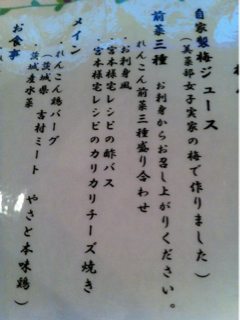 自家製梅ジュース
（美菜部女子実家の梅で作りました）
前菜三種　お刺身からお召し上がりください。
れんこん前菜三種盛り合わせ
お刺身風
・宮本様宅レシピの酢バス
・宮本様宅レシピのカリカリチーズ焼き
メイン
・れんこん鶏バーグ
（茨城県　吉村ミート　やさと本味鶏）
・茨城産水菜
お食事